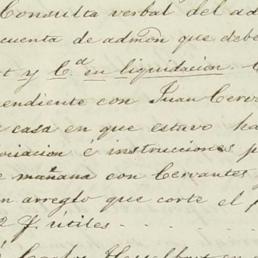 Consulta verbal del ad
cuenta de admōn que debe
t y Cª en liquidacion.
endiente con Juan Cerva
casa en que estuvo ha
oriacion é instrucciones p
e mañana con Cervantes y
n arreglo que corte el p
2 f. útiles . . .